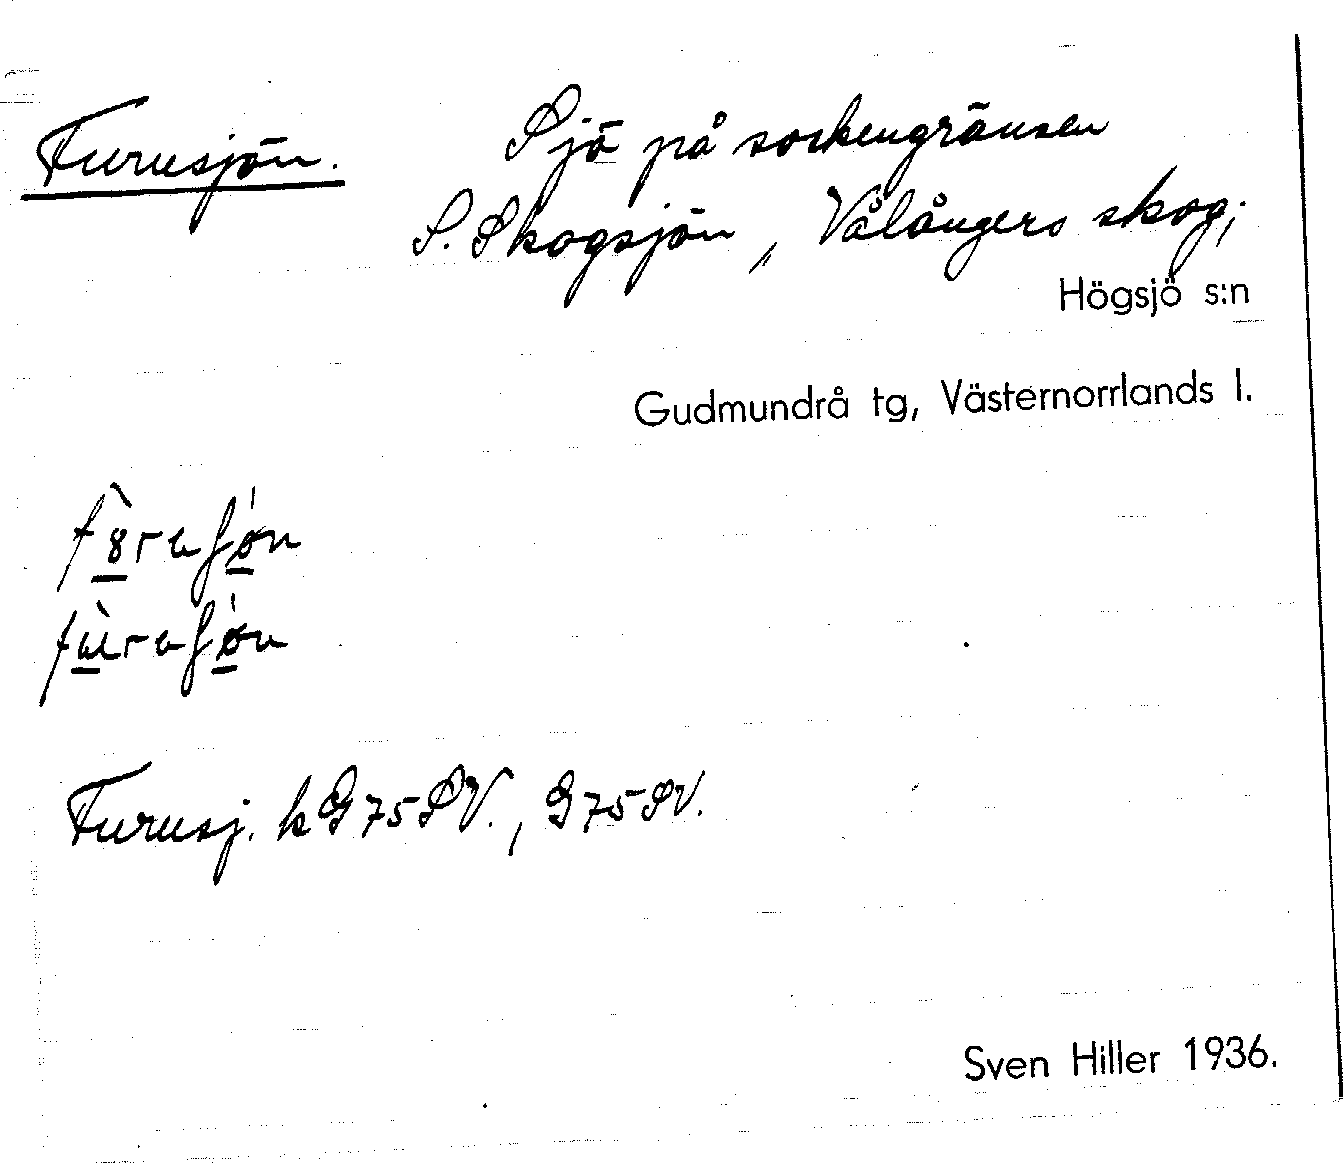 Furusjön. Sjö på sockengränsen
S. Skogsjön, Vålångers skog;
Högsjö s:n
Gudmundrå tg, Västernorrlands l.
Furusj. k G 75 SV., G 75 SV.
Sven Hiller 1936.